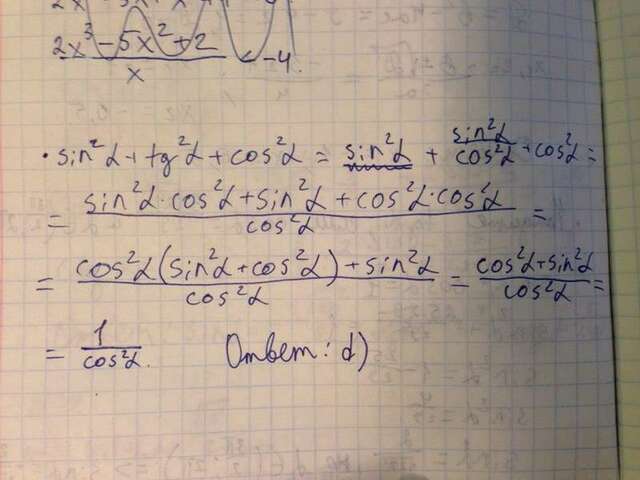 2x³ - 5x² + 2
x
- 4.
· sin²α + tg²α + cos²α = sin²α + sin²α/cos²α + cos²α =
= (sin²α · cos²α + sin²α + cos²α · cos²α)/cos²α =
= (cos²α(sin²α + cos²α) + sin²α)/cos²α = (cos²α + sin²α)/cos²α =
= 1/cos²α. Ответ: d)